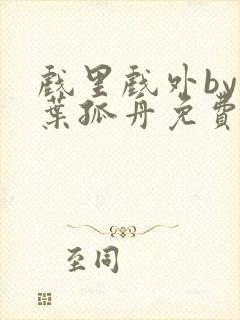 戲里戲外by
葉孤舟免費
至同